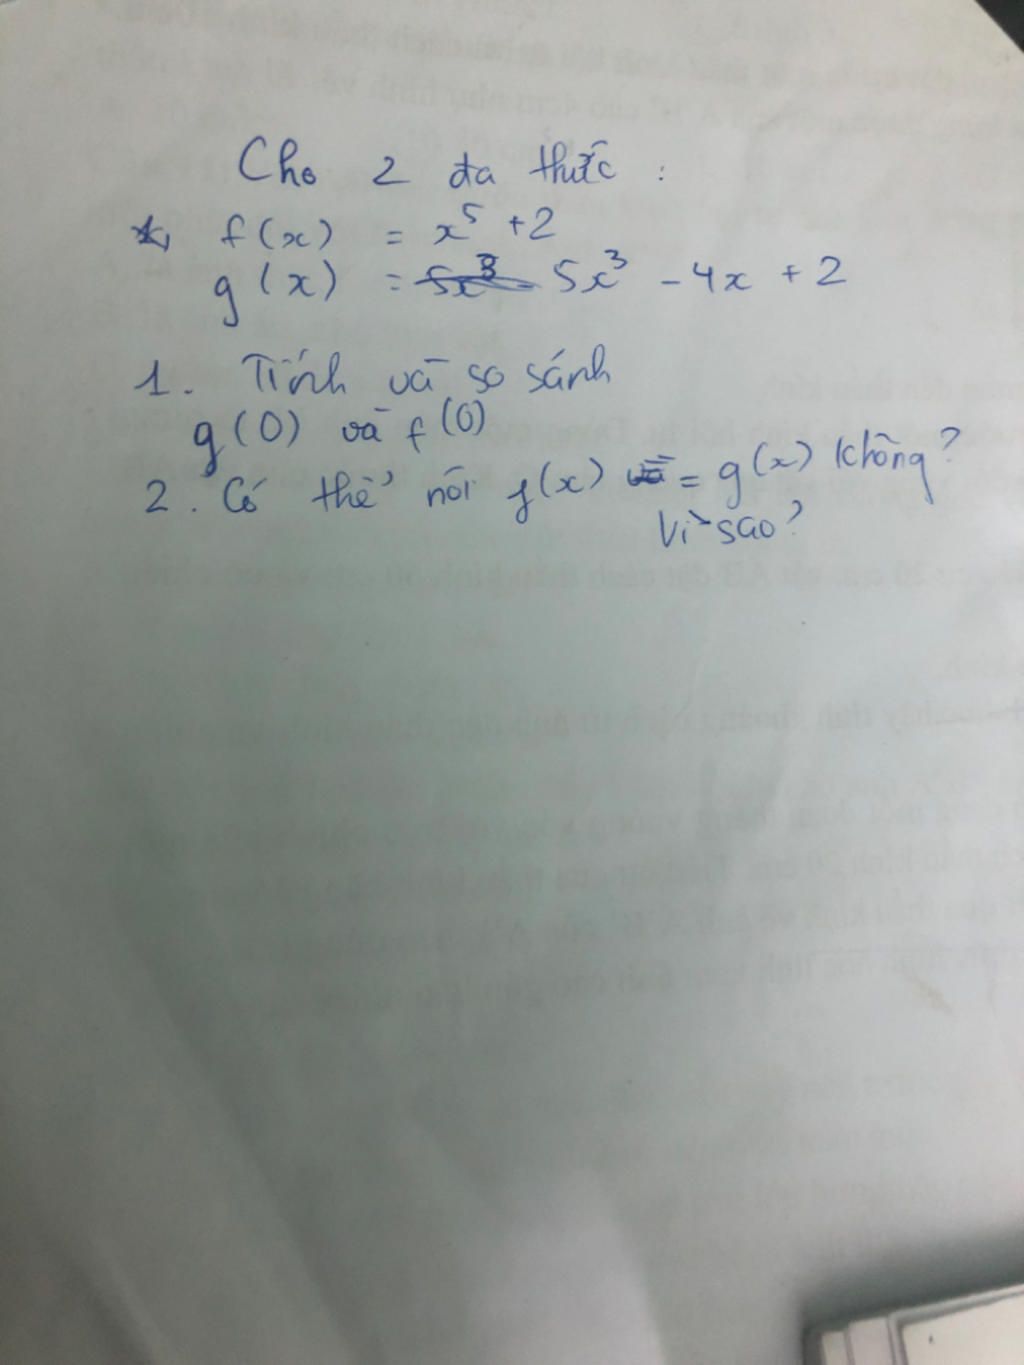 Cho 2 đa thức :
f(x) = x⁵ + 2
g(x) = 5x³ - 4x + 2
1. Tính và so sánh
g(0) và f(0)
2. Có thể nói f(x) = g(x) không?
Vì sao?